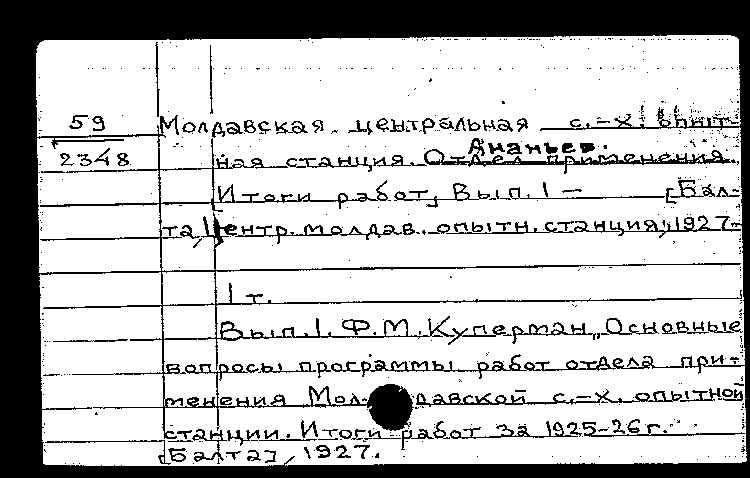 59
Молдавская центральная с.-х. опыт-
Ананьев.
2348
ная станция. Отдел применения.
[Итоги работ], Вып. 1 – [Бал-
та, Центр. молдав. опытн. станция, 1927-
1 т.
Вып. 1. Ф.М. Куперман, „Основные
вопросы программы работ отдела при-
менения Мол-давской с.-х. опытной
станции. Итоги работ за 1925-26 г."
[Балта], 1927.